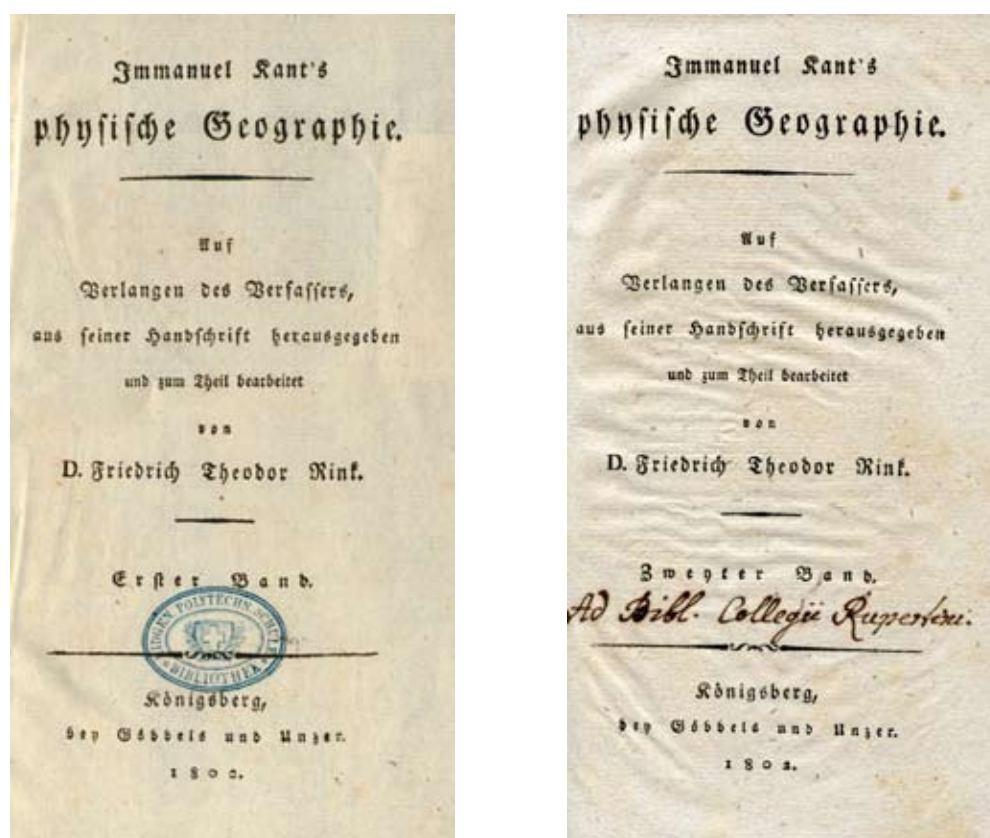 Immanuel Kant's
physische Geographie.
Auf
Verlangen des Verfassers,
aus seiner Handschrift herausgegeben
und zum Theil bearbeitet
von
D. Friedrich Theodor Rink.
Erster Band.
EIDGEN. POLYTECHN. SCHULE
BIBLIOTHEK
Königsberg,
bey Göbbels und Unzer.
1802.
Immanuel Kant's
physische Geographie.
Auf
Verlangen des Verfassers,
aus seiner Handschrift herausgegeben
und zum Theil bearbeitet
von
D. Friedrich Theodor Rink.
Zweyter Band.
Ad Bibl. Collegii Rupertini.
Königsberg,
bey Göbbels und Unzer.
1802.